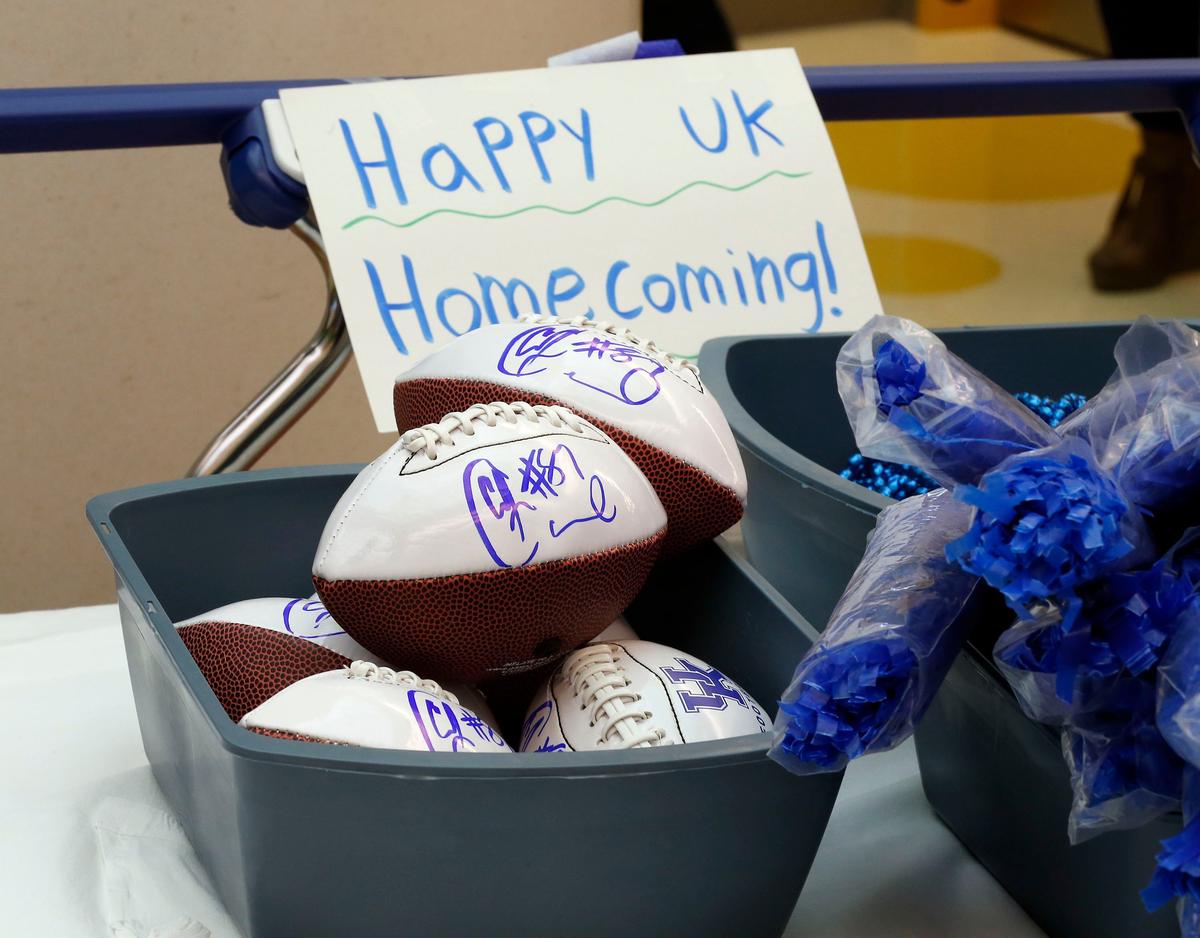 Happy UK
Homecoming!
#87
#87
#8
UK